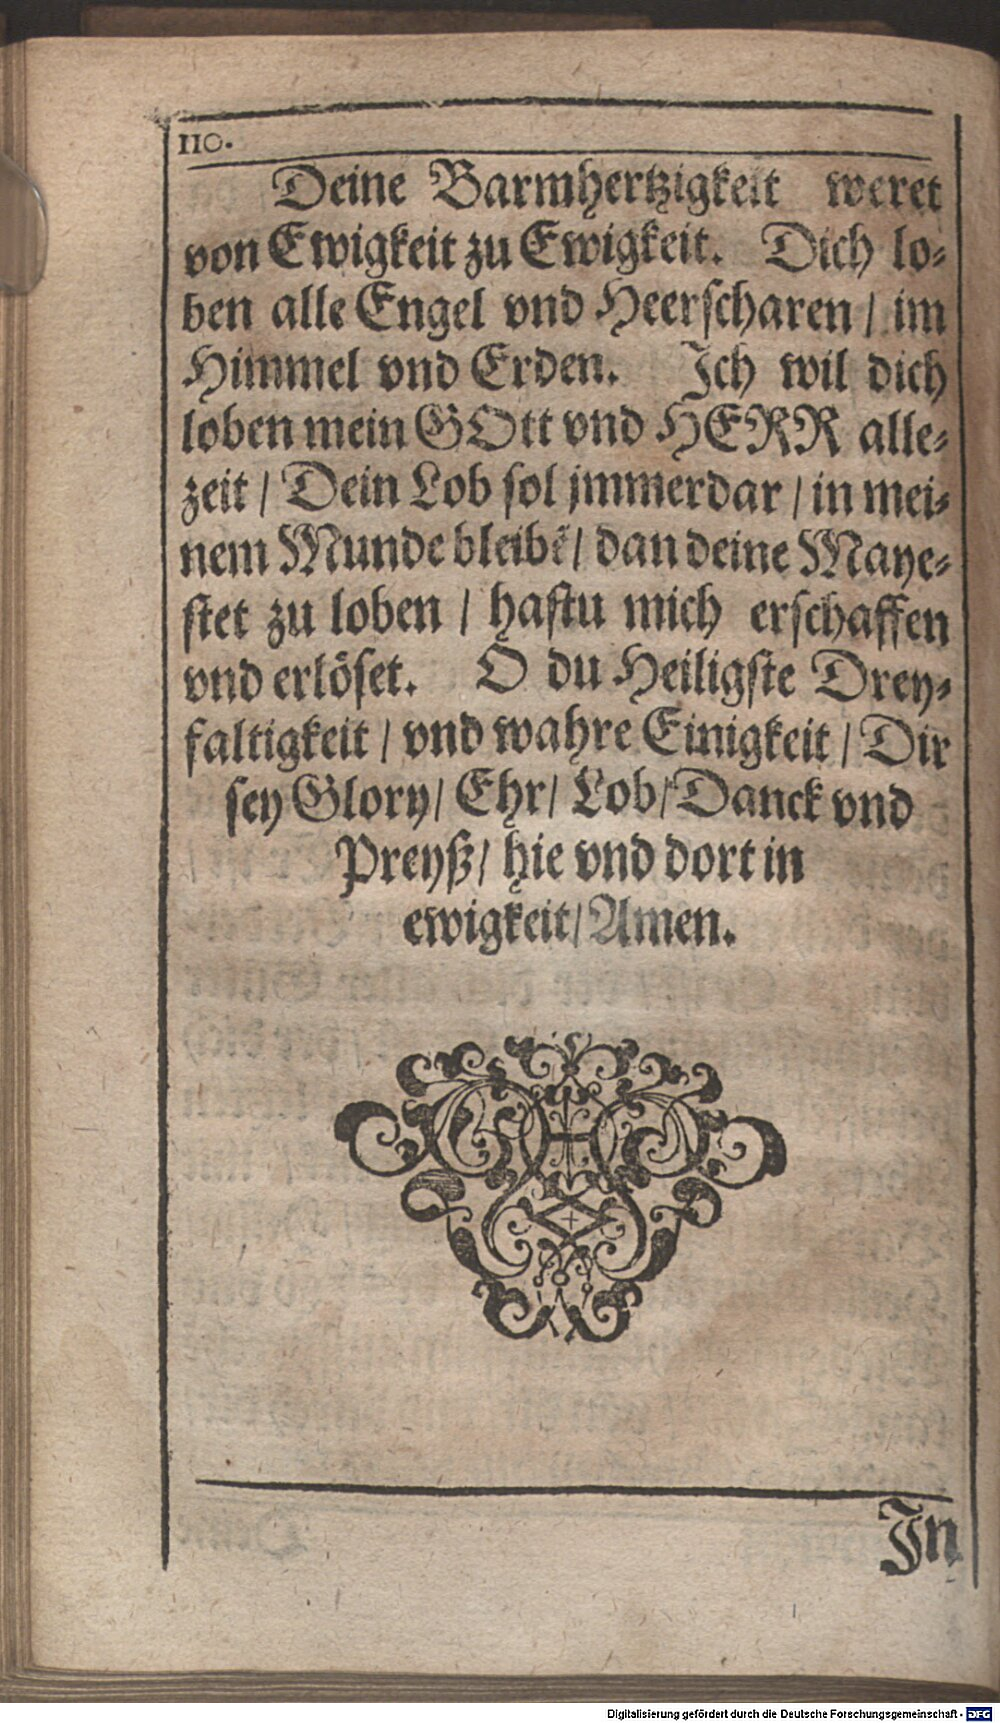 110.
Deine Barmhertzigkeit weret
von Ewigkeit zu Ewigkeit. Dich lo-
ben alle Engel vnd Heerscharen / im
Himmel vnd Erden. Ich wil dich
loben mein GOtt vnd HERR alle-
zeit / Dein Lob sol jmmerdar / in mei-
nem Munde bleibẽ / dan deine Maye-
stet zu loben / hastu mich erschaffen
vnd erlöset. O du Heiligste Drey-
faltigkeit / vnd wahre Einigkeit / Dir
sey Glory / Ehr / Lob / Danck vnd
Preyß / hie vnd dort in
ewigkeit / Amen.
In
Digitalisierung gefördert durch die Deutsche Forschungsgemeinschaft - DFG